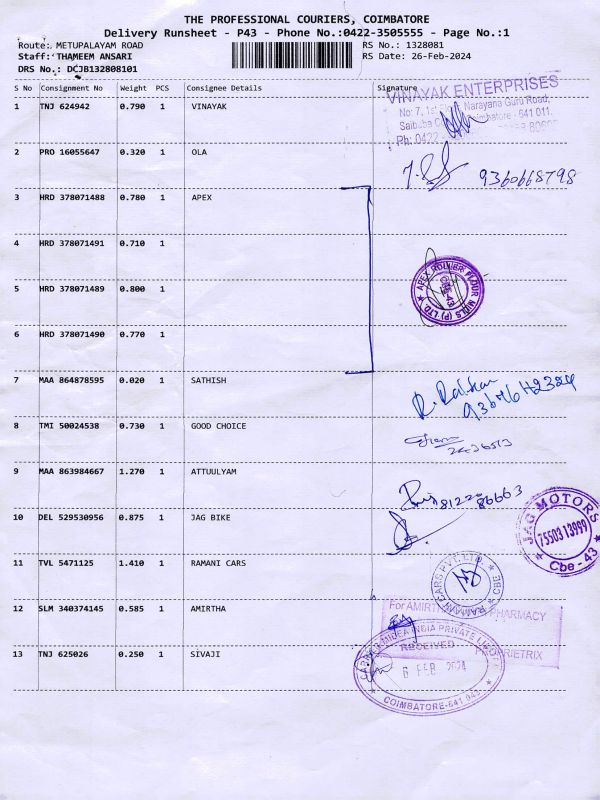 THE PROFESSIONAL COURIERS, COIMBATORE
Delivery Runsheet - P43 - Phone No.:0422-3505555 - Page No.:1
Route: METUPALAYAM ROAD
RS No.: 1328081
Staff: THAMEEM ANSARI
RS Date: 26-Feb-2024
DRS No.: DCJB132808101
S No Consignment No Weight PCS Consignee Details Signature
1 TNJ 624942 0.790 1 VINAYAK
VINAYAK ENTERPRISES
No: 7, 1st Narayana Guru Road,
Saibaba Coimbatore - 641 011.
Ph: 0422
2 PRO 16055647 0.320 1 OLA
9360668798
3 HRD 378071488 0.780 1 APEX
4 HRD 378071491 0.710 1
5 HRD 378071489 0.800 1
APEX ROLLER FLOUR MILLS (P) LTD.
CBE-43
6 HRD 378071490 0.770 1
7 MAA 864878595 0.020 1 SATHISH
8 TMI 50024538 0.730 1 GOOD CHOICE
9 MAA 863984667 1.270 1 ATTUULYAM
81222 86663
10 DEL 529530956 0.875 1 JAG BIKE
JAG MOTORS
75503 13999
Cbe - 43
11 TVL 5471125 1.410 1 RAMANI CARS
RAMANI CARS PVT. LTD.
CBE
12 SLM 340374145 0.585 1 AMIRTHA
For AMIRTHA PHARMACY
PROPRIETRIX
13 TNJ 625026 0.250 1 SIVAJI
MIDEA INDIA PRIVATE LIMITED
RECEIVED
6 FEB 2024
COIMBATORE-641 043